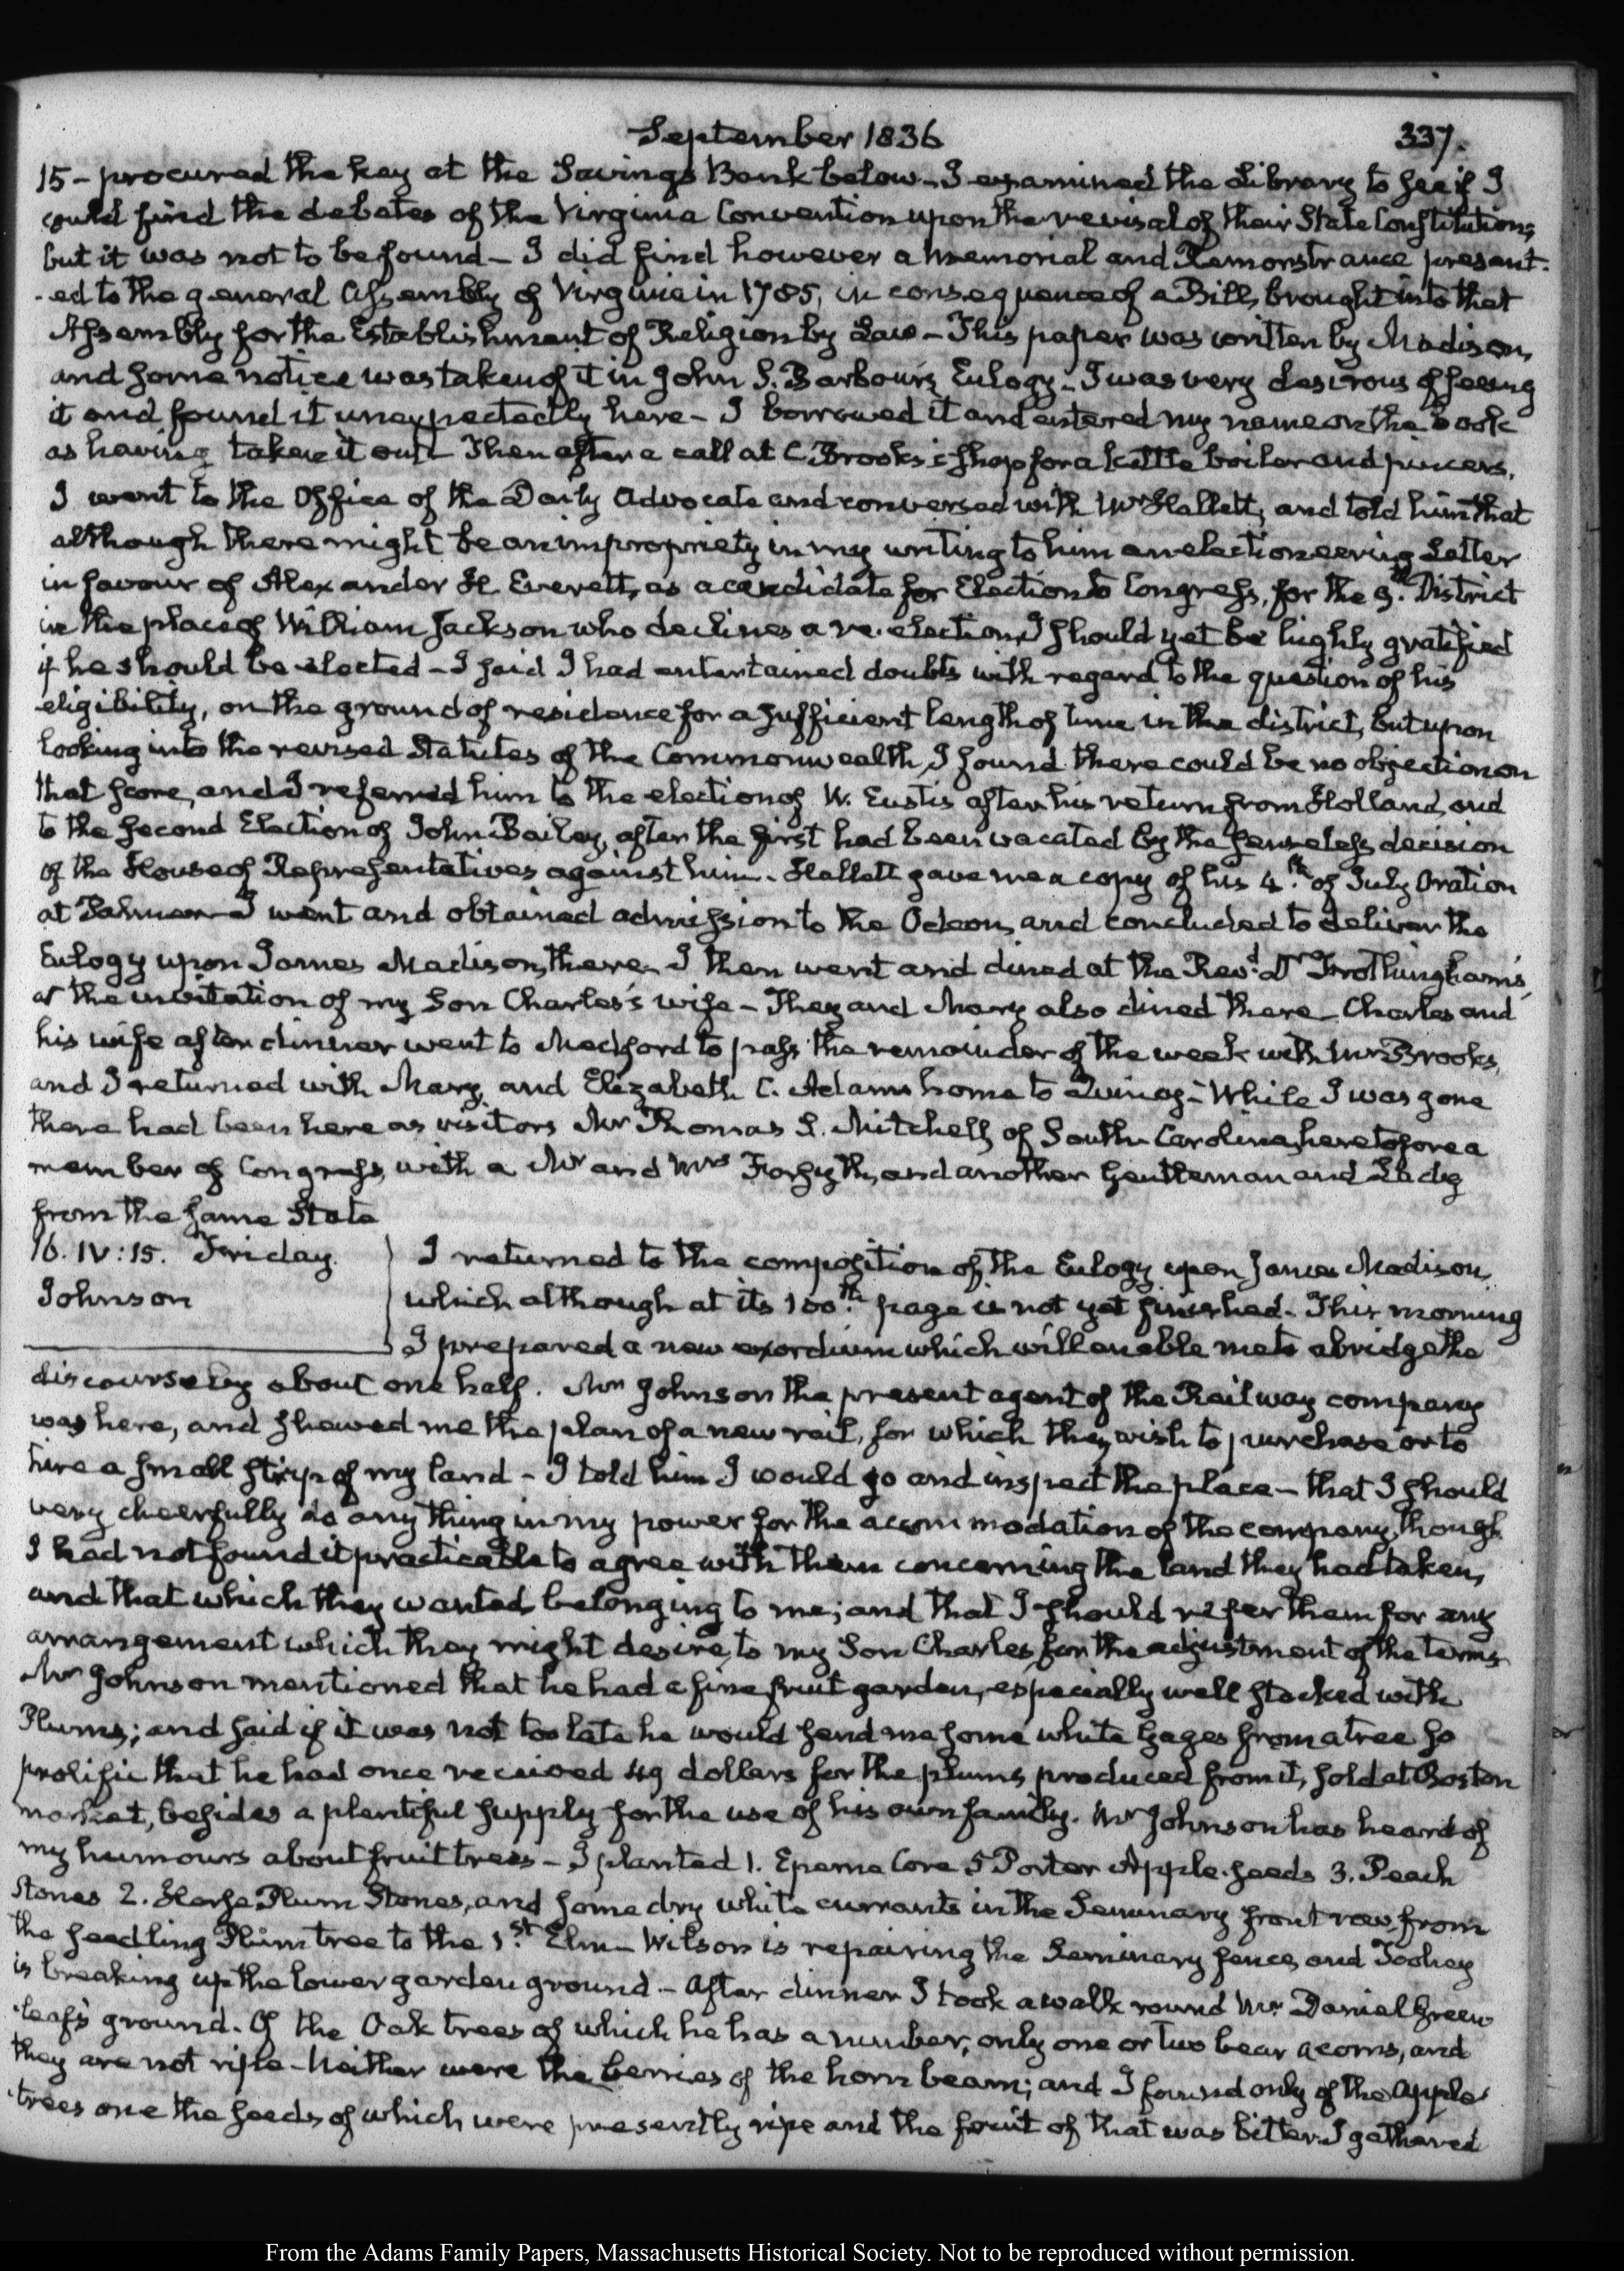 September 1836
337.
15 - procured the key at the Savings Bank below - I examined the Library to see if I
could find the debates of the Virginia Convention upon the revisal of their State Constitution,
but it was not to be found - I did find however a Memorial and Remonstrance present-
-ed to the general Assembly of Virginia in 1785, in consequence of a Bill, brought into that
Assembly for the Establishment of Religion by Law - This paper was written by Madison,
and some notice was taken of it in John S. Barbour's Eulogy - I was very desirous of seeing
it and found it unexpectedly here - I borrowed it and entered my name on the book
as having taken it out - Then after a call at C. Brooks's shop for a kettle boiler and pincers,
I went to the Office of the Daily Advocate and conversed with Mr Hallett, and told him that
although there might be an impropriety in my writing to him an electioneering Letter
in favour of Alexander H. Everett, as a candidate for Election to Congress, for the 9th. District
in the place of William Jackson who declines a re-election, I should yet be highly gratified
if he should be elected - I said I had entertained doubts with regard to the question of his
eligibility, on the ground of residence for a sufficient length of time in the district, but upon
looking into the revised Statutes of the Commonwealth, I found there could be no objection on
that score, and I referred him to the election of W. Eustis after his return from Holland, and
to the second Election of John Bailey, after the first had been vacated by the senseless decision
of the House of Representatives against him. Hallett gave me a copy of his 4.th of July Oration
at Palmer - I went and obtained admission to the Odeon, and concluded to deliver the
Eulogy upon James Madison, there. I then went and dined at the Revd. Dr Frothingham's,
at the invitation of my Son Charles's wife - They and Mary also dined there - Charles and
his wife after dinner went to Medford to pass the remainder of the week with Mr Brooks,
and I returned with Mary, and Elizabeth C. Adams home to Quincy - While I was gone
there had been here as visitors Mr Thomas R. Mitchell, of South Carolina, heretofore a
member of Congress, with a Mr and Mrs Forsyth, and another Gentleman and Lady
from the same State
16. IV:15. Friday.
Johnson
I returned to the composition of the Eulogy upon James Madison,
which although at its 100.th page is not yet finished. This morning
I prepared a new exordium which will enable me to abridge the
discourse by about one half. Mr Johnson the present agent of the Railway company
was here, and shewed me the plan of a new rail, for which they wish to purchase or to
hire a small strip of my land - I told him I would go and inspect the place - that I should
very cheerfully do any thing in my power for the accommodation of the company, though
I had not found it practicable to agree with them concerning the land they had taken,
and that which they wanted, belonging to me; and that I should refer them for any
arrangement which they might desire, to my Son Charles, for the adjustment of the terms.
Mr Johnson mentioned that he had a fine fruit garden, especially well stocked with
Plums; and said if it was not too late he would send me some white gages from a tree so
prolific that he had once received 49 dollars for the plums, produced from it, sold at Boston
market, besides a plentiful supply for the use of his own family. Mr Johnson has heard of
my humours about fruit trees - I planted 1. Eparne Core 5 Porter Apple-seeds 3. Peach
Stones 2. Horse Plum Stones, and some dry white currants in the Seminary front row, from
the seedling Plum tree to the 1st. Elm - Wilson is repairing the Seminary fence, and Toohey
is breaking up the lower garden ground. - After dinner I took a walk round Mr. Daniel Green-
-leaf's ground. Of the Oak trees of which he has a number, only one or two bear acorns, and
they are not ripe - Neither were the berries of the hornbeam; and I found only of the Apple
-trees one the seeds of which were presently ripe and the fruit of that was bitter. I gathered
From the Adams Family Papers, Massachusetts Historical Society. Not to be reproduced without permission.